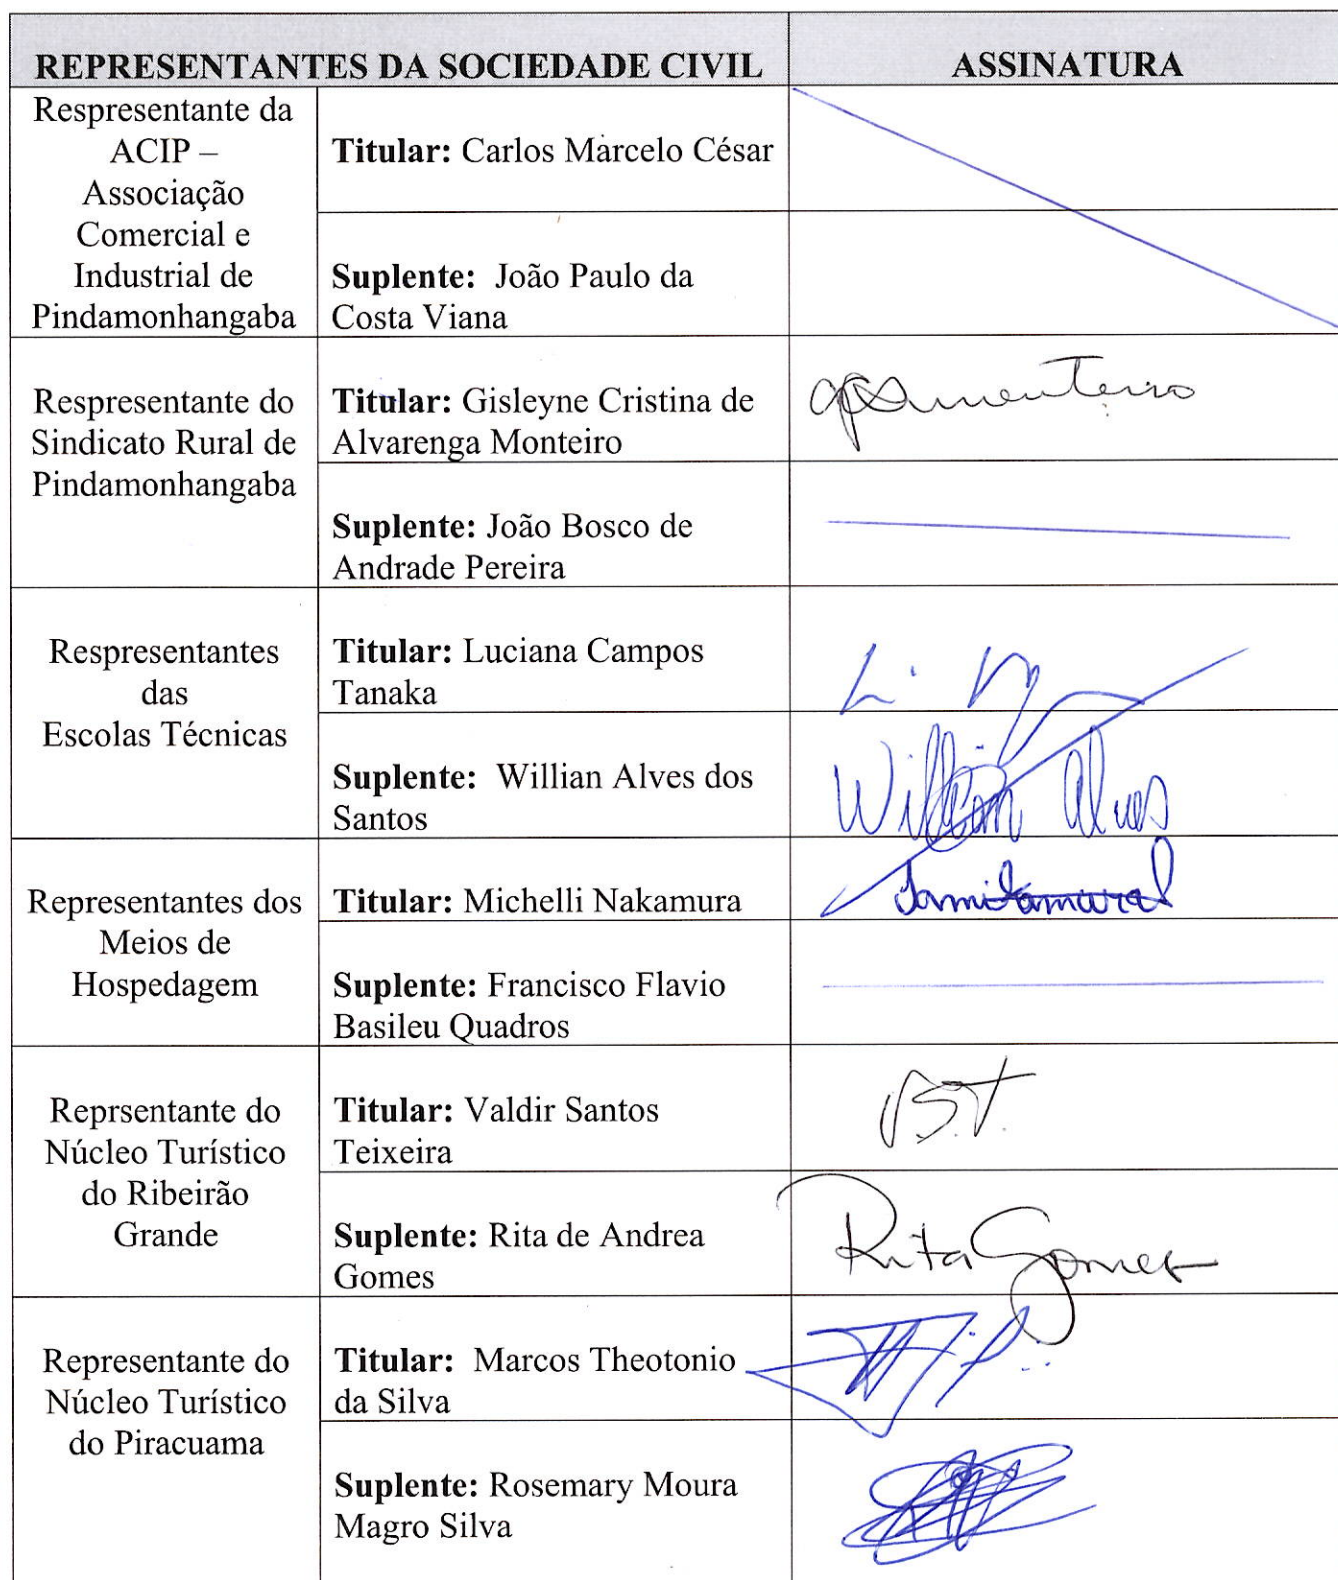 REPRESENTANTES DA SOCIEDADE CIVIL
ASSINATURA
Respresentante da
ACIP –
Associação
Comercial e
Industrial de
Pindamonhangaba
Titular: Carlos Marcelo César
Suplente: João Paulo da
Costa Viana
Respresentante do
Sindicato Rural de
Pindamonhangaba
Titular: Gisleyne Cristina de
Alvarenga Monteiro
Suplente: João Bosco de
Andrade Pereira
Respresentantes
das
Escolas Técnicas
Titular: Luciana Campos
Tanaka
Suplente: Willian Alves dos
Santos
Willian Alves
Representantes dos
Meios de
Hospedagem
Titular: Michelli Nakamura
Suplente: Francisco Flavio
Basileu Quadros
Reprsentante do
Núcleo Turístico
do Ribeirão
Grande
Titular: Valdir Santos
Teixeira
Suplente: Rita de Andrea
Gomes
Rita Gomes
Representante do
Núcleo Turístico
do Piracuama
Titular: Marcos Theotonio
da Silva
Suplente: Rosemary Moura
Magro Silva